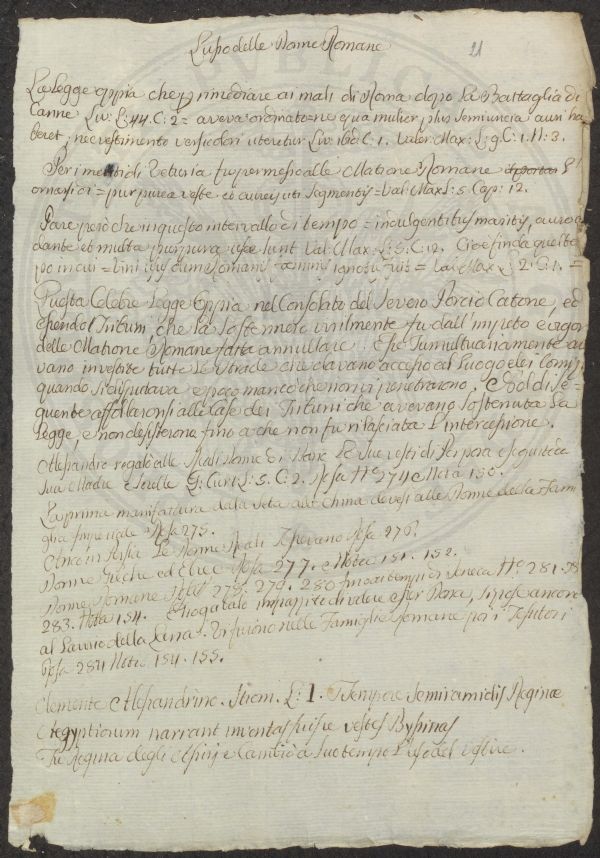 Luso delle Donne Romane
21
La Legge oppia che p rimediare ai mali di Roma dopo la Battaglia di
Canne Liv: L: 44. C: 2 = aveva ordinato = ne qua mulier plus semiuncia auri ha
beret, nec vestimento versicolori uteretur Liv: C. 1. Valer: Max: L: 9. C: 1. N: 3.
Per i meriti di Veturia fu permesso alle Matrone Romane
ornarsi di = purpurea veste, et aureis uti segmentis = Val: Max L: 5. Cap: 12.
Pare però che in questo intervallo di tempo = indulgentibus maritis, auro
dante et multa purpura usae sunt Val: Max: L: 5. C: 2. Cioè fin da questo
po in cui = Vini usus olim Romanis foeminis ignotus fuit = Val: Max L: 2. C: 1. =
Questa Celebre Legge Oppia nel Consolato del Severo Porcio Catone, ed
essendo i Tribuni, che la sostennero virilmente fu dall' impeto e vigor
delle Matrone Romane fatta annullare. Esse Tumultuariamente a
vano investite tutte le strade che davano accesso al luogo dei Comizj
quando si disputava e poco mancò che non vi penetrarono. E ol di se
quente affollaronsi alle Case dei Tribuni che avevano sostenuta la
Legge, e non desisterono fino a che non fu rilasciata l'intercessione.
Alessandro regalò alle Reali Donne di le sue vesti di Porpora e seguito da
sua Madre e Sorelle Q: Curt: L: 5. C: 2. 274 e Nota 150.
La prima manifattura dala Seta alla China devesi alle Donne della Fami
glia Imperiale 275.
Ancor in Persia le Donne Reali Tessevano 276.
Donne Greche ed Ebree 277. e Nota 151. 152.
Donne Romane 278. 279. 280 fino ai tempi di Seneca N° 281. 28
283. Nota 154. Eliogabalo di voler esser Dama, si pose ancora
al Lavoro della Lana. Vi furono nelle Famiglie Romane poi i Tesitori
284 Note 154. 155.
Clemente Alessandrino. Strom. L: 1. Tempore Semiramidis Reginae
Aegyptiorum narrant inventas fuisse vestes Byssinas
Fu Regina degli Assirj e Cambiò a suo tempo l'uso del vestire.